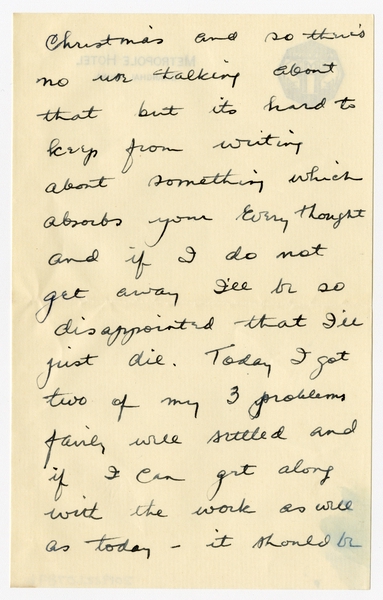 Christmas and so there's
no use talking about
that but its hard to
keep from writing
about something which
absorbs your every thought
and if I do not
get away I'll be so
disappointed that I'll
just die. Today I got
two of my 3 problems
fairly well settled and
if I can get along
with the work as well
as today – it should be